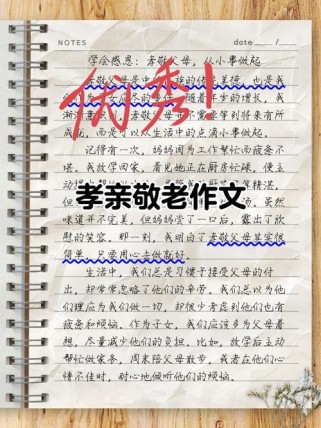 NOTES
date / /
学会感恩：孝敬父母，从小事做起
孝敬父母是中华民族的传统美德，也是我
随着年岁的增长，我
等到将来有所
生活中的点滴小事做起。
优秀！
记得有一次，妈妈因为工作繁忙而疲惫不
堪。我放学回家，看见她正在厨房忙碌，便主
孝亲敬老作文
虽然
味道并不完美，但妈妈尝了一口后，露出了欣
慰的笑容。那一刻，我明白了孝敬父母其实很
简单，只要用心去做就好。
生活中，我们总是习惯于接受父母的付
出，却常常忽略了他们的辛劳。我们总以为他
们理应为我们做一切，却很少考虑到他们也有
疲惫和烦恼。作为子女，我们应该多为父母着
想，尽量减少他们的负担。比如，放学后主动
帮忙做家务，周末陪父母散步，或者在他们心
情不佳时，耐心地倾听他们的烦恼。